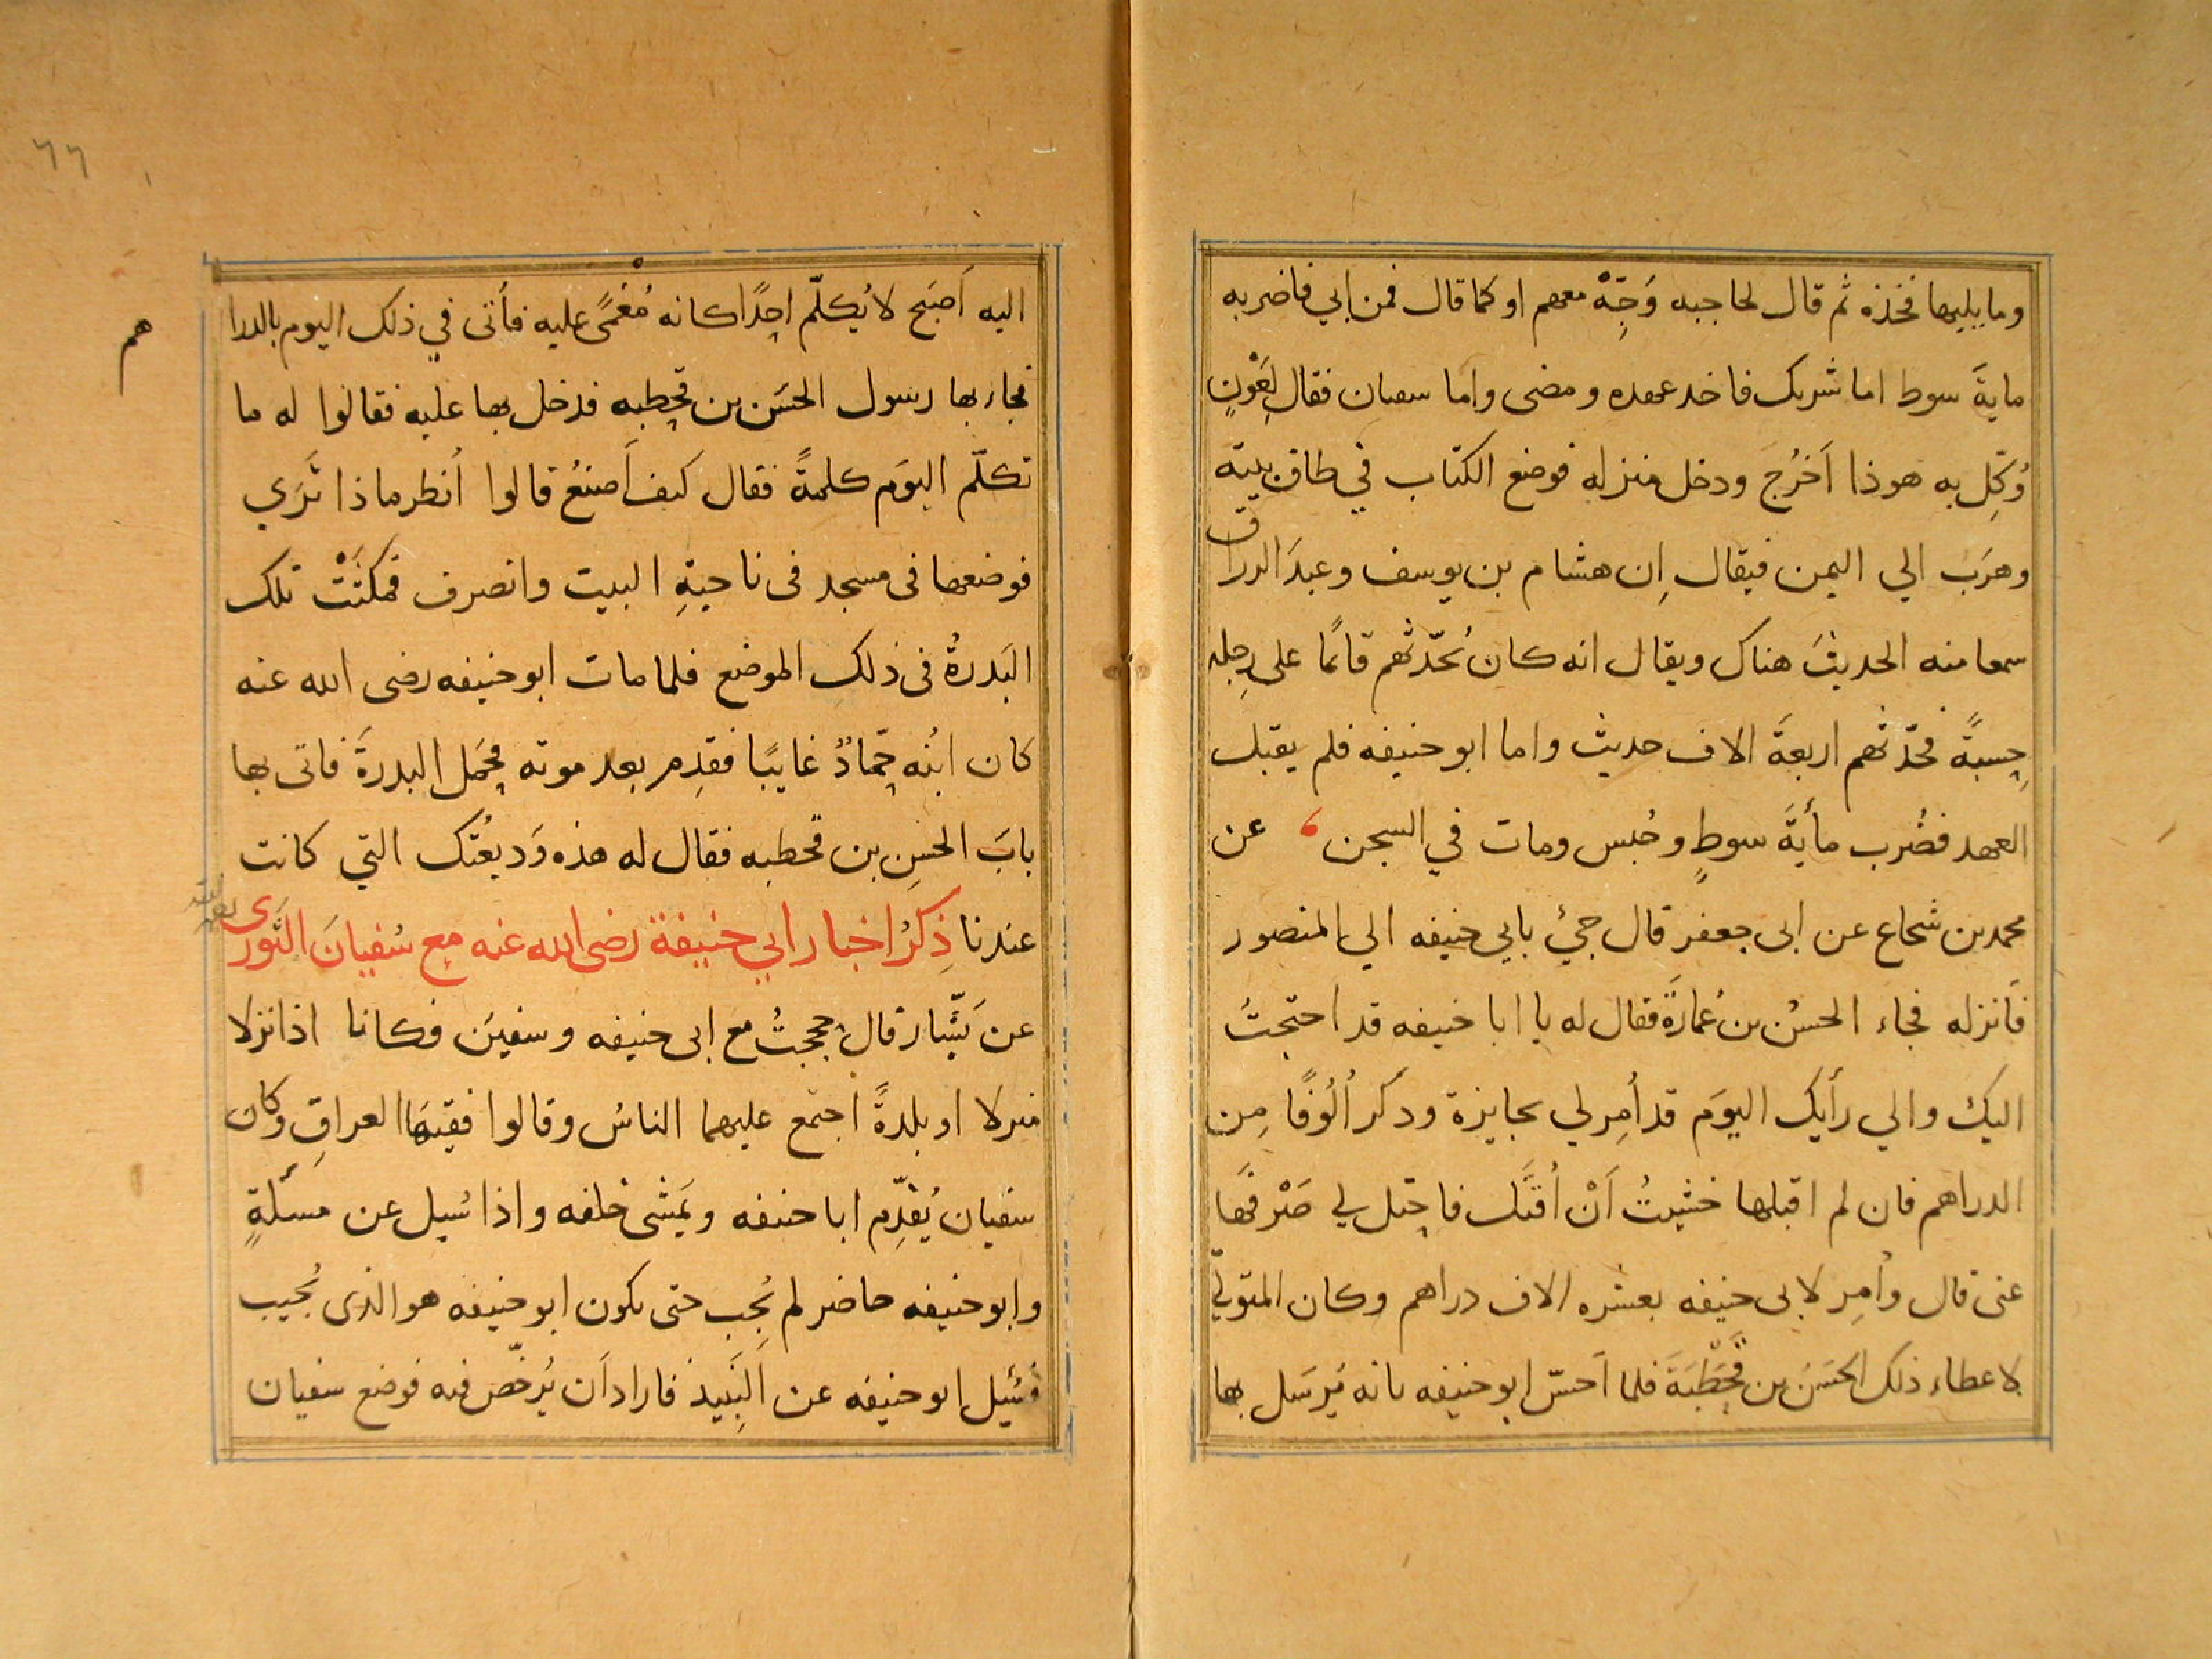 وما يليها فخذه ثم قال لحاجبه وَجِّهْ معهم او كما قال فمن ابي فاضربه
مايةَ سوط اما شريك فاخد عهده ومضى واما سفيان فقال لِعَوْنٍ
وُكِّل به هوذا اَخرُجَ ودخل منزله فوضع الكتاب في طاق بيته
وهرَبَ الي اليمن فيقال اِن هشام بن يوسف وعبدَ الرزاق
سمعا منه الحديثَ هناك ويقال انه كان يُحدّثهم قائمًا على رِجله
حِسبةً فحدّثهم اربعةَ الاف حديث واما ابو حنيفه فلم يقبل
العهد فضُرب مأيةَ سوطٍ وحُبس ومات في السجن ، عن
محمد بن شجاع عن ابى جعفر قال جيُ بابي حنيفه الي المنصور
فَانزله فجاء الحسنُ بن عُمارَة فقال له يا ابا حنيفه قد احتجتُ
اليك والي رأيك اليومَ قد اُمِر لي بجايزة ودكر اُلُوفًا مِن
الدراهم فان لم اقبلها خشيتُ اَنْ اُقتَل فاحتل لي صَرْفَها
عنى قال واُمِر لابى حنيفه بعشره الاف دراهم وكان المتولي
لاعطاء ذلك الحَسَنُ بن قَحْطَبَةَ فلما اَحسّ ابو حنيفه بانه يُرسَل بها
٦٦
اليه اَصبَح لا يُكلّم احِدًا كانه مُغمًى عليه فأتى في ذلك اليوم بالدرا
هم
فجاء بها رسول الحسَن بن قحطبه فدخل بها عليه فقالوا له ما
تكلّم اليوَم كلمةً فقال كيف اَصنَعُ قالوا اُنظر ماذا تَرَي
فوضعها فى مسجد فى ناحيةِ البيت وانصرف فمكثَتْ تلك
البَدرةُ فى ذلك الموضع فلما مات ابو حنيفه رضى الله عنه
كان ابنُه حمّادٌ غايبًا فقدِم بعد موته فحَمل البدرةَ فاتى بها
بابَ الحسَنِ بن قحطبه فقال له هذه وَديعُتك التي كانت
عندنا ذِكرُ اخبار ابي حنيفة رضى الله عنه مع سُفيانَ الثَّورى
عن يَشّار قال حججتُ مع ابى حنيفه وسفيَن فكانا اذا نزلا
منزلا او بلدةً اجتمع عليهما الناسُ وقالوا فقيهَا العراقِ وكان
سفيان يُقدِّم ابا حنيفه ويَمشى خلفه واذا سُيل عن مَسئلةٍ
وابو حنيفه حاضر لم يُجِب حتى يكون ابو حنيفه هو الذى يُجيب
فسُئيل ابو حنيفه عن النَبِيذ فاراد اَن يُرخّص فيه فوضع سفيان